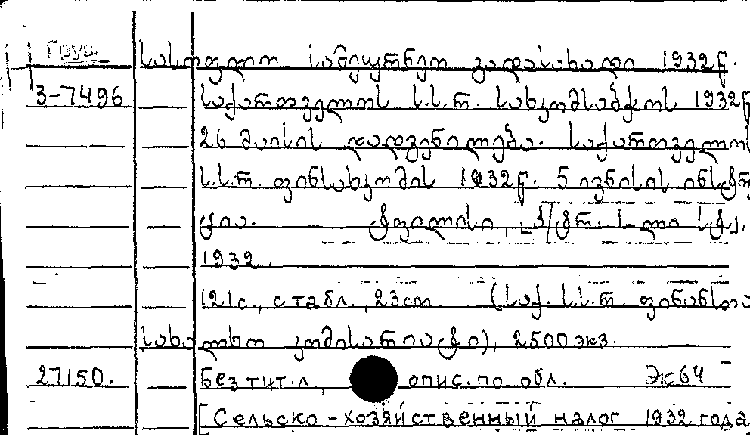 Груз.
სასოფლო სამეურნეო გადასახადი 1932 წ.
3-7496 საქართველოს ს.ს.რ. სახკომსაბჭოს 1932 წ
26 მაისის დადგენილება. საქართველოს
ს.ს.რ. ფინსახკომის 1932 წ. 5 ივნისის ინსტრ
ცია. ტფილისი,
1932.
121с., с табл., 23см. (საქ. ს.ს.რ. ფინანსთა
სახალხო კომისარიატი), 2500 экз.
27150. Без тит. л., опис. по обл. Эк64
[Сельско-хозяйственный налог 1932 года